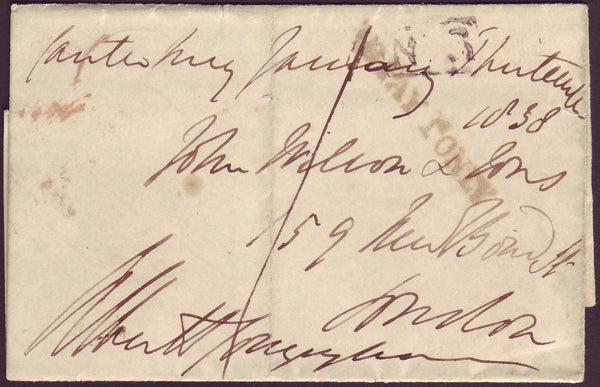 Canterbury January Thirteenth
1838
John Wilson & Sons
159 New Bond St
London
Albert Conyngham